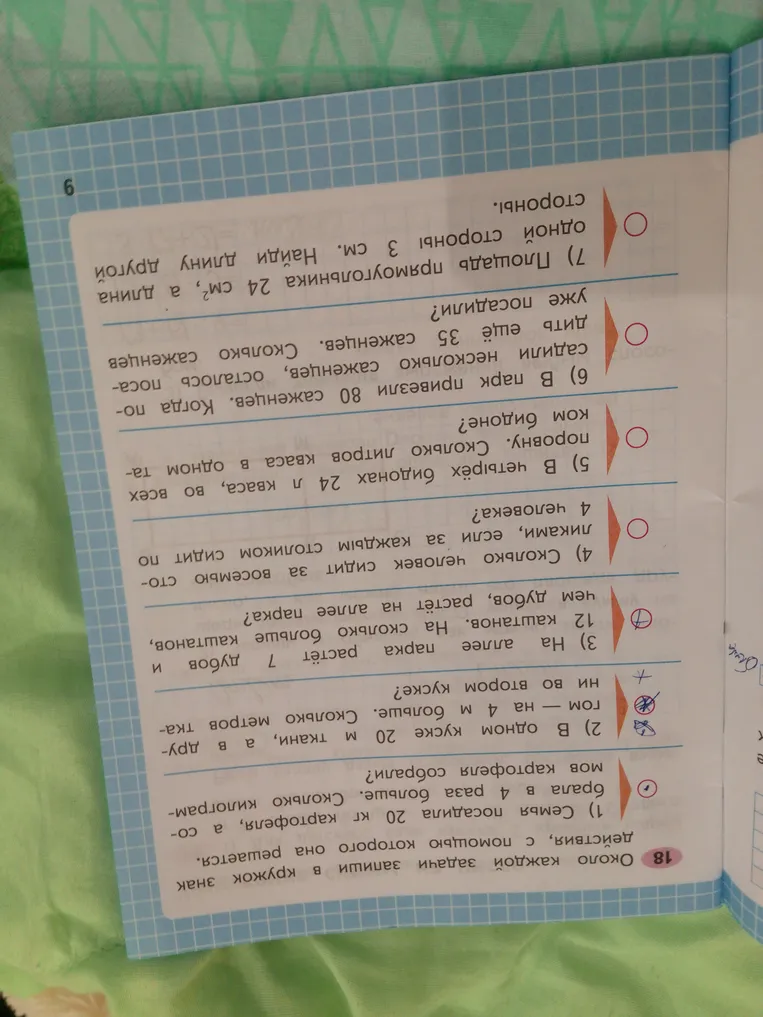 18 Около каждой задачи запиши в кружок знак
действия, с помощью которого она решается.
1) Семья посадила 20 кг картофеля, а со-
брала в 4 раза больше. Сколько килограм-
мов картофеля собрали?
2) В одном куске 20 м ткани, а в дру-
гом — на 4 м больше. Сколько метров тка-
ни во втором куске?
+
3) На аллее парка растёт 7 дубов и
12 каштанов. На сколько больше каштанов,
чем дубов, растёт на аллее парка?
4) Сколько человек сидит за восемью сто-
ликами, если за каждым столиком сидит по
4 человека?
5) В четырёх бидонах 24 л кваса, во всех
поровну. Сколько литров кваса в одном та-
ком бидоне?
6) В парк привезли 80 саженцев. Когда по-
садили несколько саженцев, осталось поса-
дить ещё 35 саженцев. Сколько саженцев
уже посадили?
7) Площадь прямоугольника 24 см², а длина
одной стороны 3 см. Найди длину другой
стороны.
9